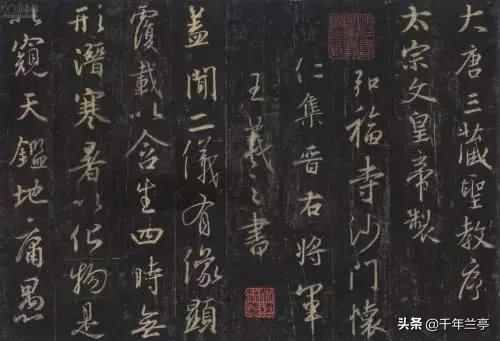 大唐三藏聖教序
太宗文皇帝製
弘福寺沙門懷
仁集晉右將軍
王羲之書
盖聞二儀有像顯
覆載以含生四時無
形潛寒暑以化物是
以窺天鑑地庸愚
头条 @千年兰亭